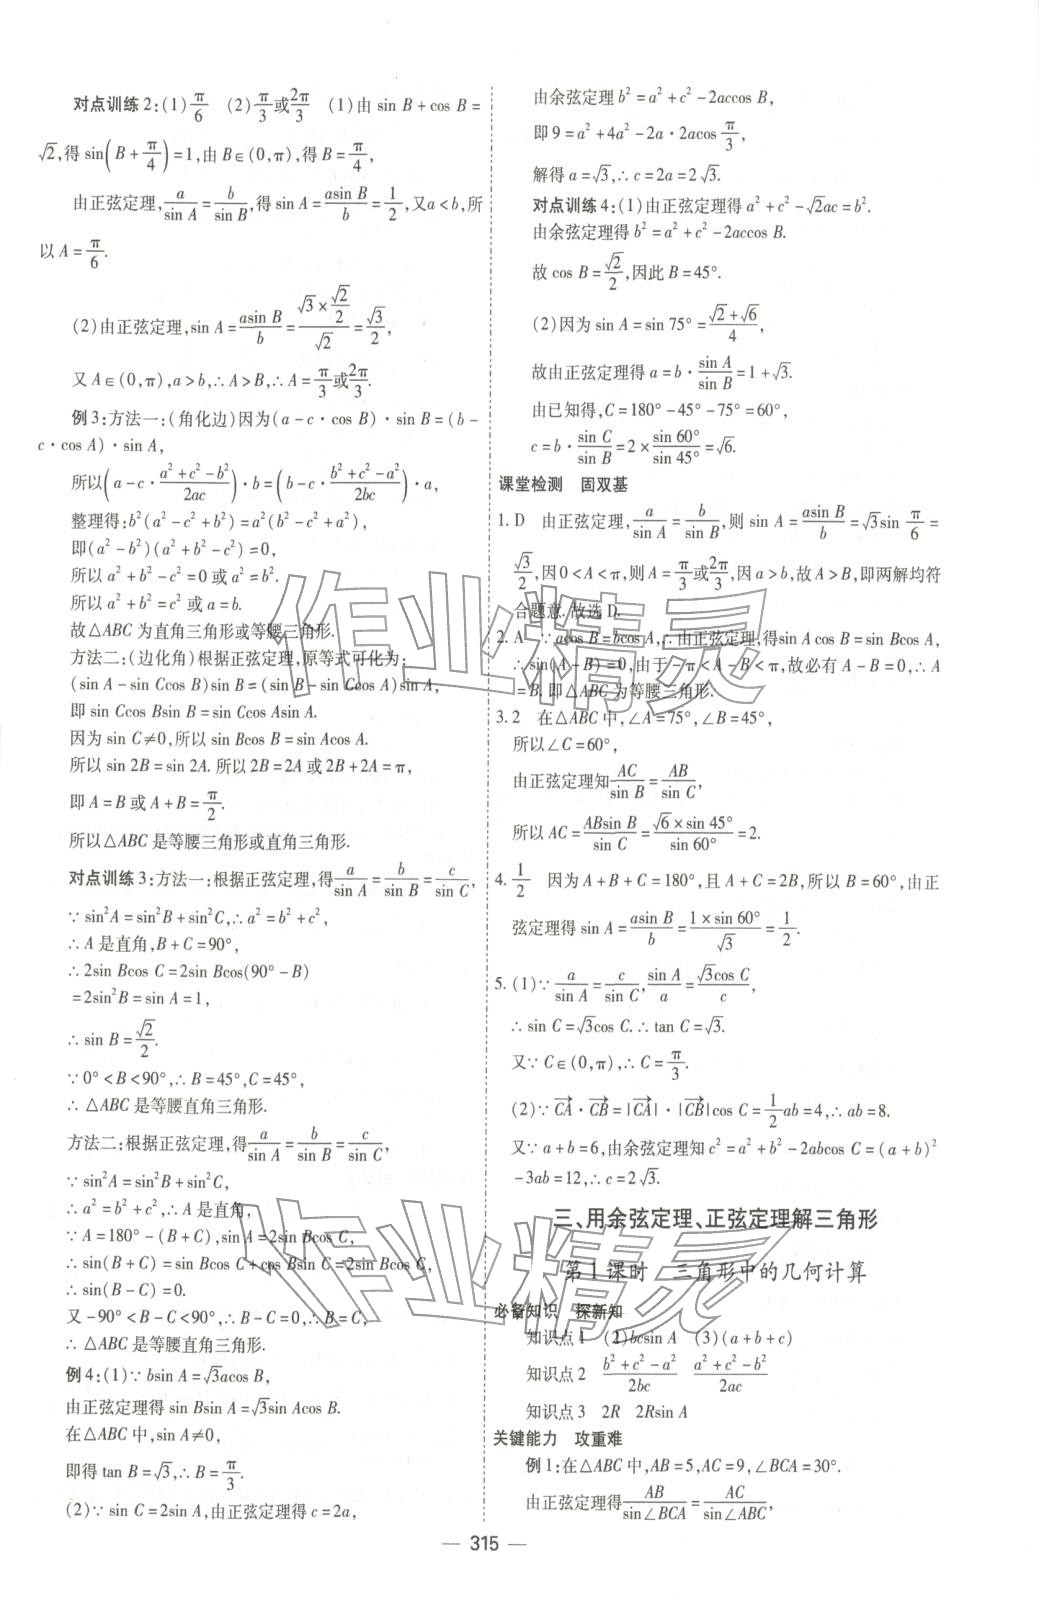 对点训练2:(1)π/6 (2)π/3或2π/3 (1)由 sin B+cos B=
√2,得 sin(B+π/4)=1,由 B∈(0,π),得 B=π/4,
由正弦定理,a/sin A=b/sin B,得 sin A=asin B/b=1/2,又a<b,所
以 A=π/6.
(2)由正弦定理,sin A=asin B/b=(√3×√2/2)/√2=√3/2,
又 A∈(0,π),a>b,∴A>B,∴A=π/3或2π/3.
例3:方法一:(角化边)因为(a-c·cos B)·sin B=(b-
c·cos A)·sin A,
所以(a-c·(a²+c²-b²)/2ac)·b=(b-c·(b²+c²-a²)/2bc)·a,
整理得:b²(a²-c²+b²)=a²(b²-c²+a²),
即(a²-b²)(a²+b²-c²)=0,
所以 a²+b²-c²=0 或 a²=b².
所以 a²+b²=c² 或 a=b.
故△ABC 为直角三角形或等腰三角形.
方法二:(边化角)根据正弦定理,原等式可化为:
(sin A-sin Ccos B)sin B=(sin B-sin Ccos A)sin A,
即 sin Ccos Bsin B=sin Ccos Asin A.
因为 sin C≠0,所以 sin Bcos B=sin Acos A.
所以 sin 2B=sin 2A.所以 2B=2A 或 2B+2A=π,
即 A=B 或 A+B=π/2.
所以△ABC 是等腰三角形或直角三角形.
对点训练3:方法一:根据正弦定理,得a/sin A=b/sin B=c/sin C,
∵sin²A=sin²B+sin²C,∴a²=b²+c²,
∴A 是直角,B+C=90°,
∴2sin Bcos C=2sin Bcos(90°-B)
=2sin²B=sin A=1,
∴sin B=√2/2.
∵0°<B<90°,∴B=45°,C=45°,
∴△ABC 是等腰直角三角形.
方法二:根据正弦定理,得a/sin A=b/sin B=c/sin C,
∵sin²A=sin²B+sin²C,
∴a²=b²+c²,∴A 是直角.
∵A=180°-(B+C),sin A=2sin Bcos C,
∴sin(B+C)=sin Bcos C+cos Bsin C=2sin Bcos C,
∴sin(B-C)=0.
又-90°<B-C<90°,∴B-C=0,∴B=C,
∴△ABC 是等腰直角三角形.
例4:(1)∵bsin A=√3acos B,
由正弦定理得 sin Bsin A=√3sin Acos B.
在△ABC 中,sin A≠0,
即得 tan B=√3,∴B=π/3.
(2)∵sin C=2sin A,由正弦定理得 c=2a,
由余弦定理 b²=a²+c²-2accos B,
即 9=a²+4a²-2a·2acos π/3,
解得 a=√3,∴c=2a=2√3.
对点训练4:(1)由正弦定理得 a²+c²-√2ac=b².
由余弦定理得 b²=a²+c²-2accos B.
故 cos B=√2/2,因此 B=45°.
(2)因为 sin A=sin 75°=(√2+√6)/4,
故由正弦定理得 a=b·sin A/sin B=1+√3.
由已知得,C=180°-45°-75°=60°,
c=b·sin C/sin B=2×sin 60°/sin 45°=√6.
课堂检测 固双基
1. D 由正弦定理,a/sin A=b/sin B,则 sin A=asin B/b=√3sin π/6=
√3/2,因0<A<π,则A=π/3或2π/3,因a>b,故A>B,即两解均符
合题意.故选 D.
2. A ∵acos B=bcos A,∴由正弦定理,得sin Acos B=sin Bcos A,
∴sin(A-B)=0,由于-π<A-B<π,故必有 A-B=0,∴A
=B.即△ABC 为等腰三角形.
3. 2 在△ABC 中,∠A=75°,∠B=45°,
所以∠C=60°,
由正弦定理知AC/sin B=AB/sin C,
所以 AC=ABsin B/sin C=√6×sin 45°/sin 60°=2.
4. 1/2 因为 A+B+C=180°,且 A+C=2B,所以 B=60°,由正
弦定理得 sin A=asin B/b=1×sin 60°/√3=1/2.
5. (1)∵a/sin A=c/sin C,sin A/a=√3cos C/c,
∴sin C=√3cos C.∴tan C=√3.
又∵C∈(0,π),∴C=π/3.
(2)∵CA→·CB→=|CA→|·|CB→|cos C=1/2ab=4,∴ab=8.
又∵a+b=6,由余弦定理知 c²=a²+b²-2abcos C=(a+b)²
-3ab=12,∴c=2√3.
三、用余弦定理、正弦定理解三角形
第1课时 三角形中的几何计算
必备知识 探新知
知识点1 (2)bcsin A (3)(a+b+c)
知识点2 (b²+c²-a²)/2bc (a²+c²-b²)/2ac
知识点3 2R 2Rsin A
关键能力 攻重难
例1:在△ABC 中,AB=5,AC=9,∠BCA=30°.
由正弦定理得AB/sin∠BCA=AC/sin∠ABC,
— 315 —
作业精灵
作业精灵